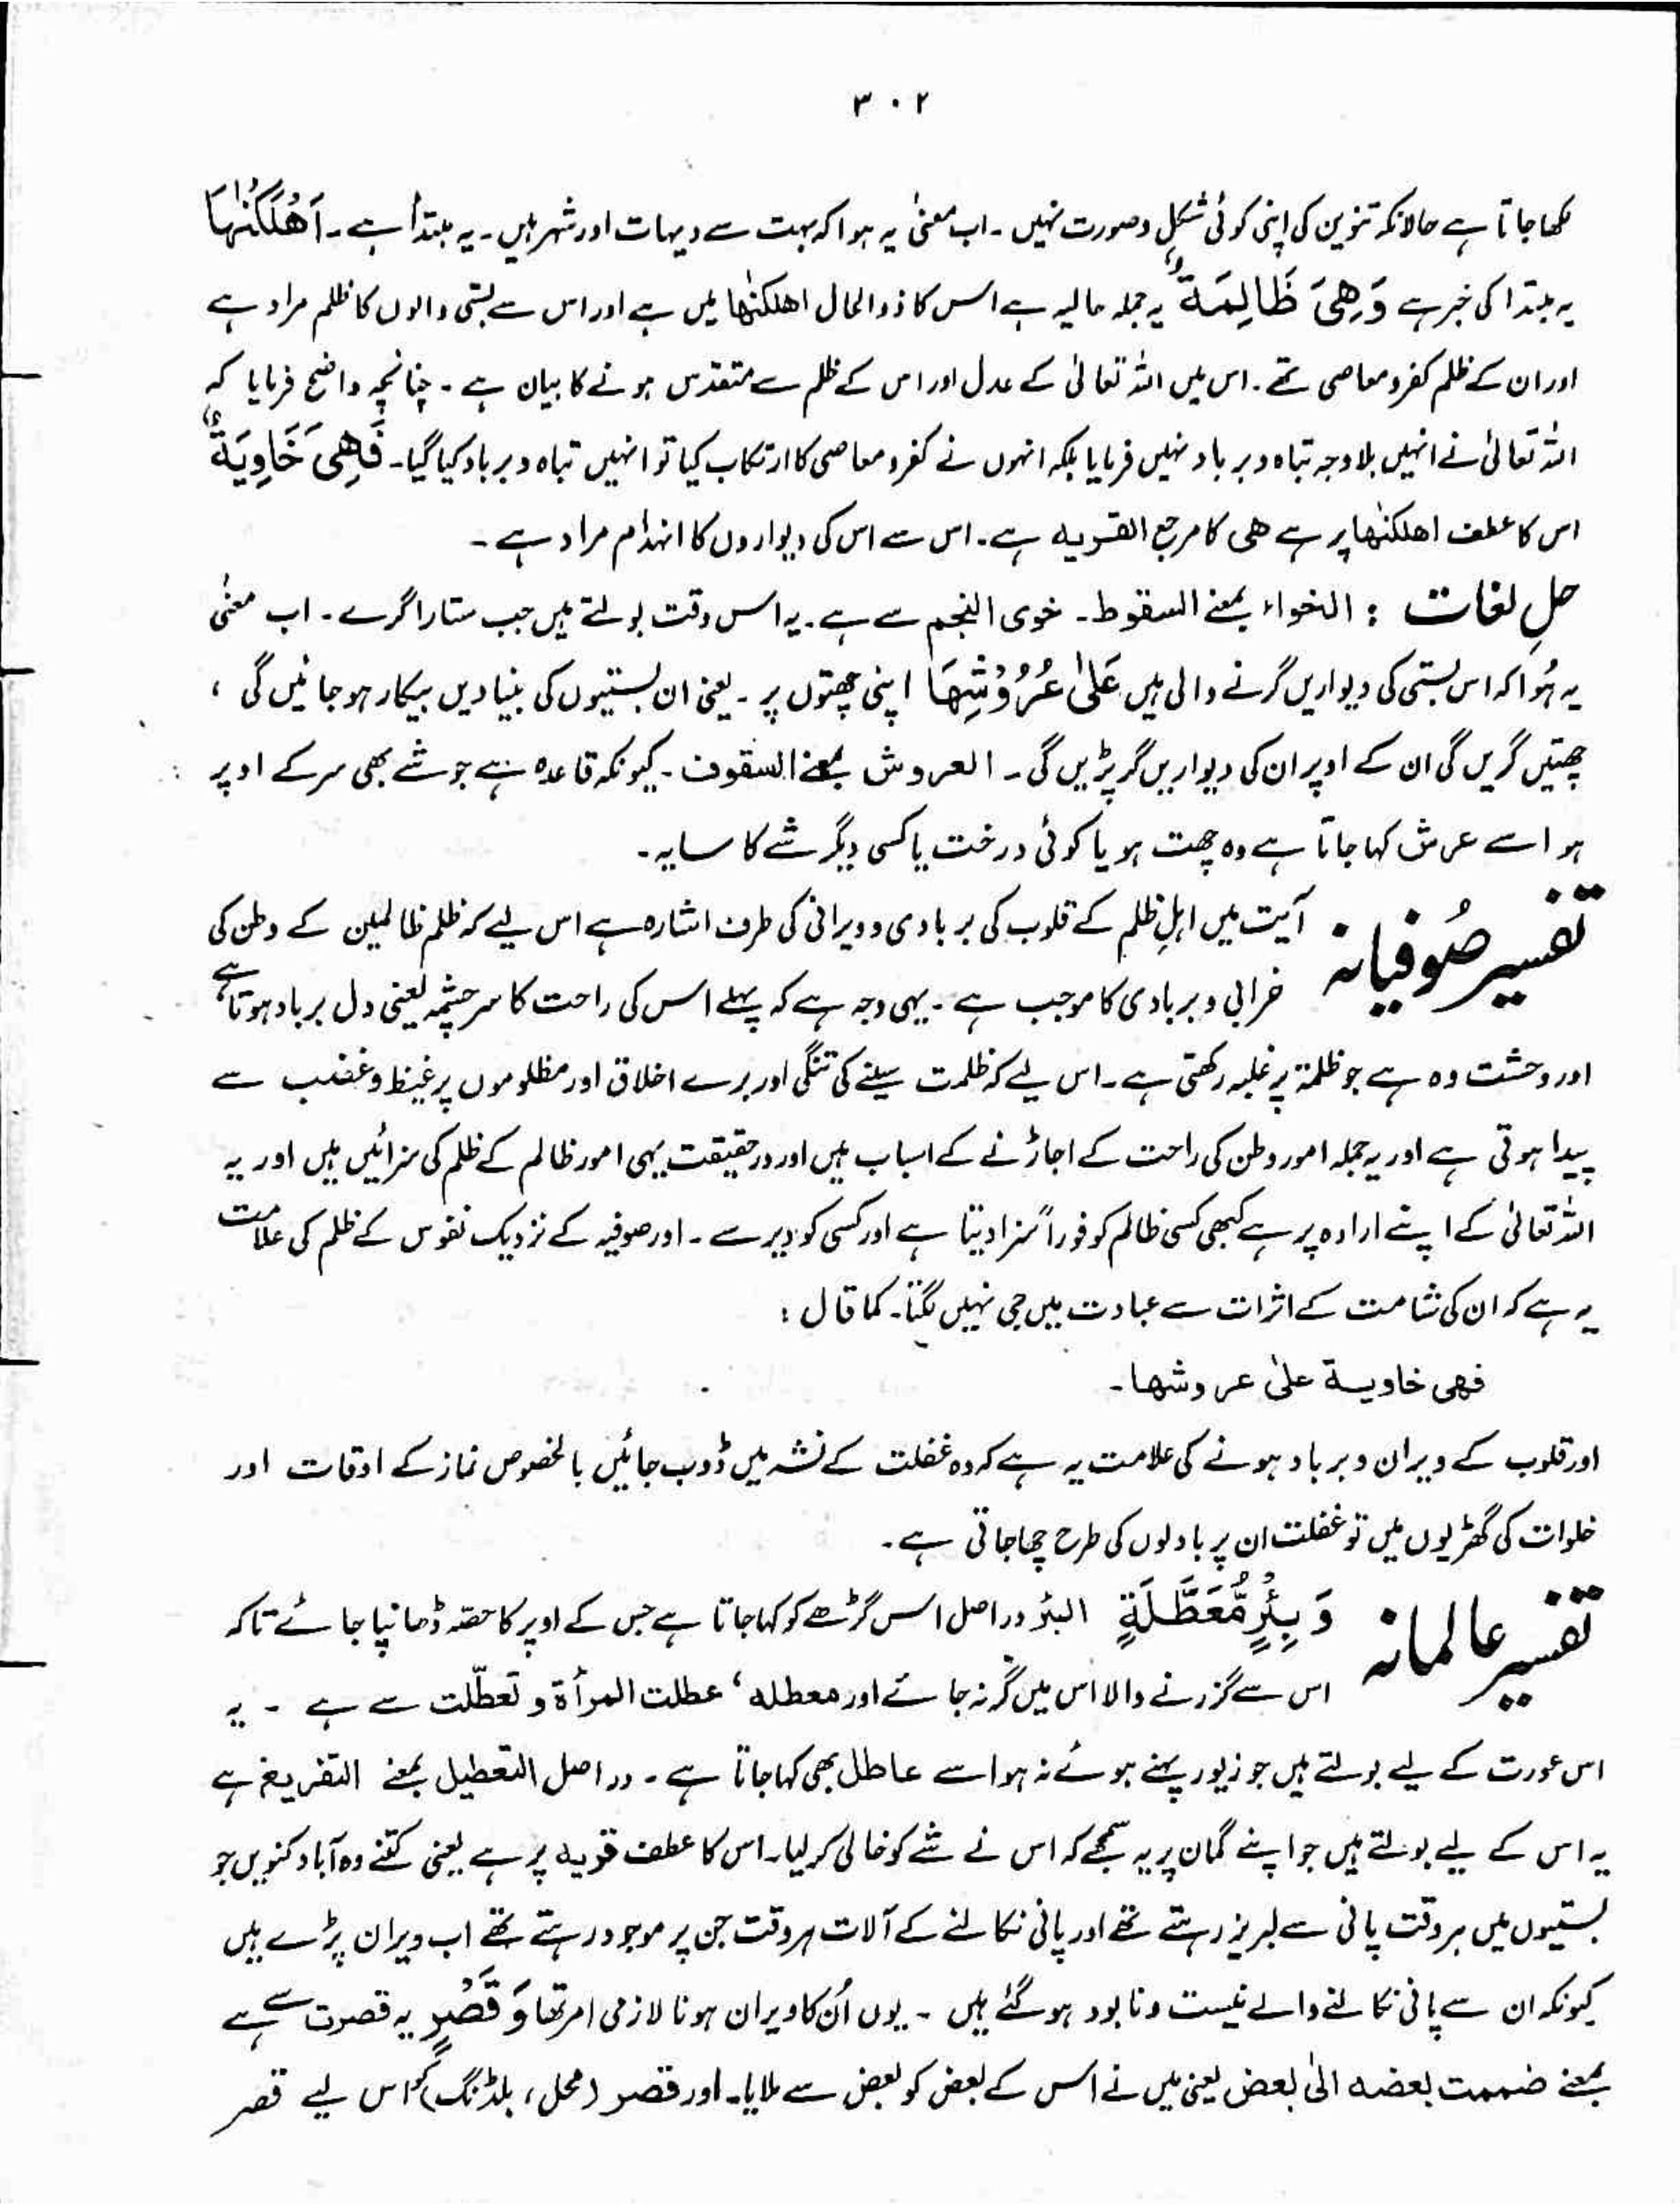 ۳۰۲
لکھا جاتا ہے حالانکہ تنوین کی اپنی کوئی شکل و صورت نہیں ۔ اب معنیٰ یہ ہوا کہ بہت سے دیہات اور شہر ہیں ۔ یہ مبتدأ ہے ۔ اَھْلَکْنٰھَا
یہ مبتدا کی خبر ہے وَھِیَ ظَالِمَۃٌ یہ جملہ حالیہ ہے اس کا ذوالحال اھلکنٰھا میں ہے اور اس سے بستی والوں کا ظلم مراد ہے
اور ان کے ظلم کفر و معاصی تھے ۔ اس میں اللہ تعالیٰ کے عدل اور اس کے ظلم سے متقدس ہونے کا بیان ہے ۔ چنانچہ واضح فرمایا کہ
اللہ تعالیٰ نے انہیں بلا وجہ تباہ و برباد نہیں فرمایا بلکہ انہوں نے کفر و معاصی کا ارتکاب کیا تو انہیں تباہ و برباد کیا گیا ۔ فَھِیَ خَاوِیَۃٌ
اس کا عطف اھلکنٰھا پر ہے ھی کا مرجع القریہ ہے ۔ اس سے اس کی دیواروں کا انہدام مراد ہے ۔
حلِ لغات : الخواء بمعنے السقوط ۔ خوی النجم سے ہے ۔ یہ اس وقت بولتے ہیں جب ستارا گرے ۔ اب معنیٰ
یہ ہُوا کہ اس بستی کی دیواریں گرنے والی ہیں عَلٰی عُرُوْشِھَا اپنی چھتوں پر ۔ یعنی ان بستیوں کی بنیادیں بیکار ہو جائیں گی ،
چھتیں گریں گی ان کے اوپر ان کی دیواریں گر پڑیں گی ۔ العروش بمعنے السقوف ۔ کیونکہ قاعدہ ہے جو شے بھی سر کے اوپر
ہو اسے عرش کہا جاتا ہے وہ چھت ہو یا کوئی درخت یا کسی دیگر شے کا سایہ ۔
تفسیر صُوفیانہ آیت میں اہلِ ظلم کے قلوب کی بربادی و ویرانی کی طرف اشارہ ہے اس لیے کہ ظلم ظالمین کے وطن کی
خرابی و بربادی کا موجب ہے ۔ یہی وجہ ہے کہ پہلے اس کی راحت کا سرچشمہ یعنی دل برباد ہوتا ہے
اور وحشت وہ ہے جو ظلمۃ پر غلبہ رکھتی ہے ۔ اس لیے کہ ظلمت سینے کی تنگی اور برے اخلاق اور مظلوموں پر غیظ و غضب سے
پیدا ہوتی ہے اور یہ جملہ امور وطن کی راحت کے اجاڑنے کے اسباب ہیں اور درحقیقت یہی امور ظالم کے ظلم کی سزائیں ہیں اور یہ
اللہ تعالیٰ کے اپنے ارادہ پر ہے کبھی کسی ظالم کو فوراً سزا دیتا ہے اور کسی کو دیر سے ۔ اور صوفیہ کے نزدیک نفوس کے ظلم کی علامت
یہ ہے کہ ان کی شامت کے اثرات سے عبادت میں جی نہیں لگتا ۔ کما قال :
فھی خاویۃ علیٰ عروشھا ۔
اور قلوب کے ویران و برباد ہونے کی علامت یہ ہے کہ وہ غفلت کے نشہ میں ڈوب جائیں بالخصوص نماز کے اوقات اور
خلوات کی گھڑیوں میں تو غفلت ان پر بادلوں کی طرح چھا جاتی ہے ۔
تفسیر عالمانہ وَبِئْرٍ مُّعَطَّلَۃٍ البئر دراصل اس گڑھے کو کہا جاتا ہے جس کے اوپر کا حصّہ ڈھانپا جائے تاکہ
اس سے گزرنے والا اس میں گر نہ جائے اور معطلہ ، عطلت المرأۃ و تعطّلت سے ہے ۔ یہ
اس عورت کے لیے بولتے ہیں جو زیور پہنے ہوئے نہ ہو اسے عاطل بھی کہا جاتا ہے ۔ دراصل التعطیل بمعنے التفریغ ہے
یہ اس کے لیے بولتے ہیں جو اپنے گمان پر یہ سمجھے کہ اس نے شے کو خالی کر لیا ۔ اس کا عطف قریہ پر ہے یعنی کتنے وہ آباد کنویں جو
بستیوں میں ہر وقت پانی سے لبریز رہتے تھے اور پانی نکالنے کے آلات ہر وقت جن پر موجود رہتے تھے اب ویران پڑے ہیں
کیونکہ ان سے پانی نکالنے والے نیست و نابود ہو گئے ہیں ۔ یوں اُن کا ویران ہونا لازمی امر تھا وَّقَصْرٍ یہ قصرت سے ہے
بمعنے ضممت بعضہ الیٰ بعض یعنی میں نے اس کے بعض کو بعض سے ملایا ۔ اور قصر (محل ، بلڈنگ) کو اس لیے قصر